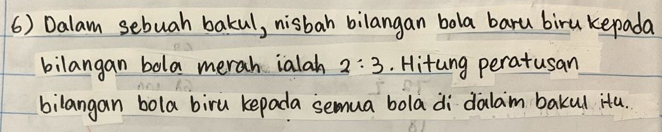 6) Dalam sebuah bakul, nisbah bilangan bola baru biru kepada
bilangan bola merah ialah 2:3. Hitung peratusan
bilangan bola biru kepada semua bola di dalam bakul itu.